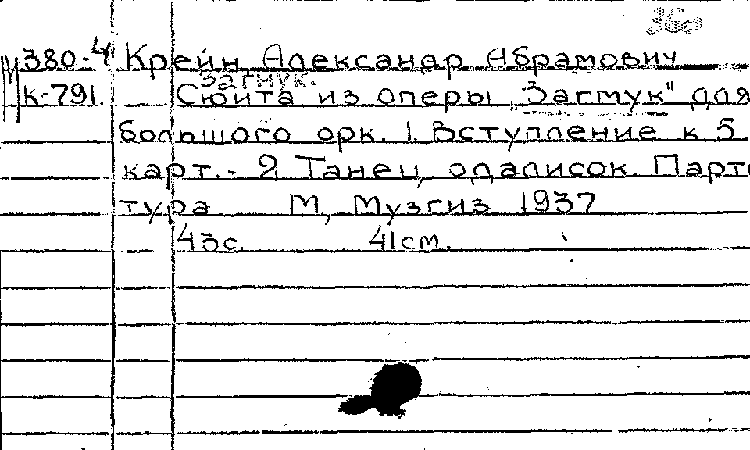 380-4 Крейн Александр Абрамович
Загмук.
К-791. Сюита из оперы „Загмук" для
большого орк. 1. Вступление к 5
карт. - 2 Танец одалисок. Парт
тура М, Музгиз 1937
43с. 41см.